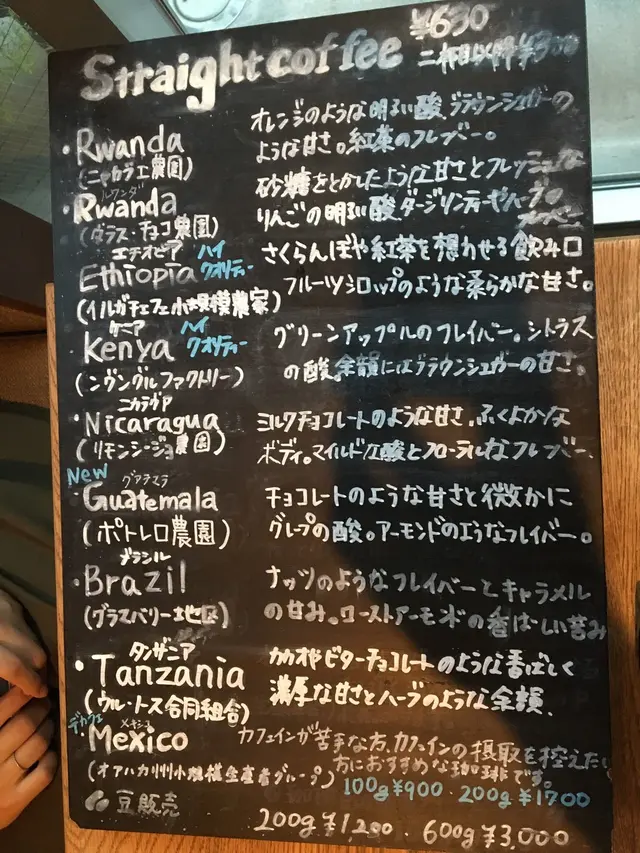 Straight coffee ¥630
二杯目以降¥300
・Rwanda オレンジのような明るい酸、ブラウンシュガーの
(ニャカラエ農園) ような甘さ。紅茶のフレーバー。
ルワンダ
・Rwanda 砂糖をとかしたような甘さとフレッシュな
(ダラス・チョコ農園) りんごの明るい酸、ダージリンティーやハーブの
フレーバー
エチオピア ハイ
Ethiopia クオリティー さくらんぼや紅茶を想わせる飲み口
(イルガチェフェ小規模農家) フルーツシロップのような柔らかな甘さ。
ケニア ハイ
・Kenya クオリティー グリーンアップルのフレイバー。シトラス
(ンヴングルファクトリー) の酸。余韻にはブラウンシュガーの甘さ。
ニカラグア
・Nicaragua ミルクチョコレートのような甘さ。ふくよかな
(リモンシージョ農園) ボディ。マイルドな酸とフローラルなフレーバー。
New グアテマラ
・Guatemala チョコレートのような甘さと微かに
(ポトレロ農園) グレープの酸。アーモンドのようなフレイバー。
ブラジル
・Brazil ナッツのようなフレイバーとキャラメル
(グラスバリー地区) の甘み。ローストアーモンドの香ばしい苦み
タンザニア
・Tanzania カカオやビターチョコレートのような香ばしく
(ウル・トス合同組合) 濃厚な甘さとハーブのような余韻、
デカフェ メキシコ
・Mexico カフェインが苦手な方、カフェインの摂取を控えたい
(オアハカ州小規模生産者グループ) 方におすすめな珈琲です。
100g¥900・200g¥1700
豆販売
200g¥1,200・600g¥3,000